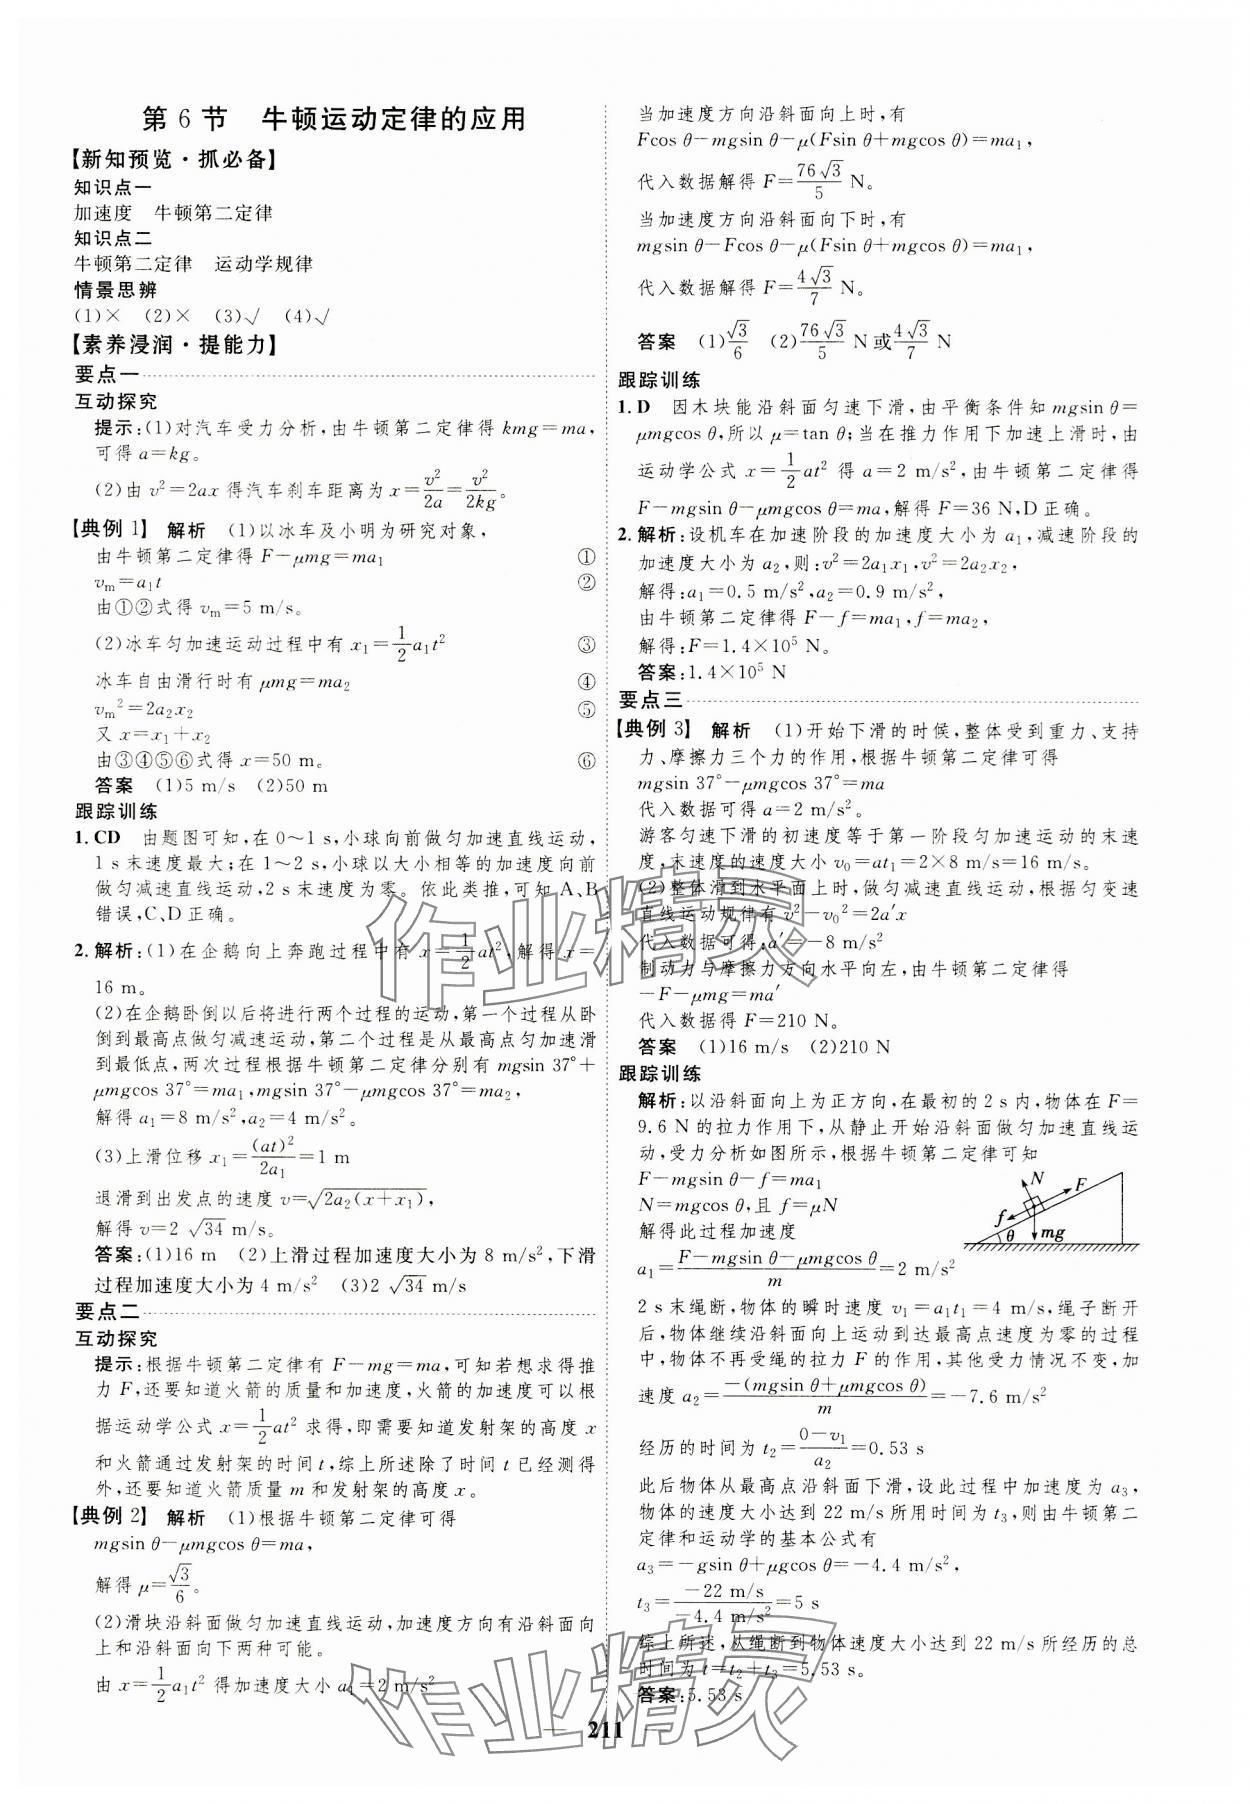 第 6 节　牛顿运动定律的应用
【新知预览·抓必备】
知识点一
加速度　牛顿第二定律
知识点二
牛顿第二定律　运动学规律
情景思辨
(1)×　(2)×　(3)√　(4)√
【素养浸润·提能力】
要点一
互动探究
提示:(1)对汽车受力分析,由牛顿第二定律得 kmg=ma,
可得 a=kg。
(2)由 v²=2ax 得汽车刹车距离为 x=v²/2a=v²/2kg。
【典例 1】 解析　(1)以冰车及小明为研究对象,
由牛顿第二定律得 F-μmg=ma₁　①
vₘ=a₁t　②
由①②式得 vₘ=5 m/s。
(2)冰车匀加速运动过程中有 x₁=1/2 a₁t²　③
冰车自由滑行时有 μmg=ma₂　④
vₘ²=2a₂x₂　⑤
又 x=x₁+x₂
由③④⑤⑥式得 x=50 m。　⑥
答案　(1)5 m/s　(2)50 m
跟踪训练
1. CD　由题图可知,在 0～1 s,小球向前做匀加速直线运动,
1 s末速度最大;在 1～2 s,小球以大小相等的加速度向前
做匀减速直线运动,2 s末速度为零。依此类推,可知 A、B
错误,C、D 正确。
2. 解析:(1)在企鹅向上奔跑过程中有 x=1/2 at²,解得 x=
16 m。
(2)在企鹅卧倒以后将进行两个过程的运动,第一个过程从卧
倒到最高点做匀减速运动,第二个过程是从最高点匀加速滑
到最低点,两次过程根据牛顿第二定律分别有 mgsin 37°+
μmgcos 37°=ma₁,mgsin 37°-μmgcos 37°=ma₂,
解得 a₁=8 m/s²,a₂=4 m/s²。
(3)上滑位移 x₁=(at)²/2a₁=1 m
退滑到出发点的速度 v=√(2a₂(x+x₁)),
解得 v=2√34 m/s。
答案:(1)16 m　(2)上滑过程加速度大小为 8 m/s²,下滑
过程加速度大小为 4 m/s²　(3)2√34 m/s
要点二
互动探究
提示:根据牛顿第二定律有 F-mg=ma,可知若想求得推
力 F,还要知道火箭的质量和加速度,火箭的加速度可以根
据运动学公式 x=1/2 at² 求得,即需要知道发射架的高度 x
和火箭通过发射架的时间 t,综上所述除了时间 t 已经测得
外,还要知道火箭质量 m 和发射架的高度 x。
【典例 2】 解析　(1)根据牛顿第二定律可得
mgsin θ-μmgcos θ=ma,
解得 μ=√3/6。
(2)滑块沿斜面做匀加速直线运动,加速度方向有沿斜面向
上和沿斜面向下两种可能。
由 x=1/2 a₁t² 得加速度大小 a₁=2 m/s²
当加速度方向沿斜面向上时,有
Fcos θ-mgsin θ-μ(Fsin θ+mgcos θ)=ma₁,
代入数据解得 F=76√3/5 N。
当加速度方向沿斜面向下时,有
mgsin θ-Fcos θ-μ(Fsin θ+mgcos θ)=ma₁,
代入数据解得 F=4√3/7 N。
答案　(1)√3/6　(2)76√3/5 N或4√3/7 N
跟踪训练
1. D　因木块能沿斜面匀速下滑,由平衡条件知 mgsin θ=
μmgcos θ,所以 μ=tan θ;当在推力作用下加速上滑时,由
运动学公式 x=1/2 at² 得 a=2 m/s²,由牛顿第二定律得
F-mgsin θ-μmgcos θ=ma,解得 F=36 N,D 正确。
2. 解析:设机车在加速阶段的加速度大小为 a₁,减速阶段的
加速度大小为 a₂,则:v²=2a₁x₁,v²=2a₂x₂,
解得:a₁=0.5 m/s²,a₂=0.9 m/s²,
由牛顿第二定律得 F-f=ma₁,f=ma₂,
解得:F=1.4×10⁵ N。
答案:1.4×10⁵ N
要点三
【典例 3】 解析　(1)开始下滑的时候,整体受到重力、支持
力、摩擦力三个力的作用,根据牛顿第二定律可得
mgsin 37°-μmgcos 37°=ma
代入数据可得 a=2 m/s²。
游客匀速下滑的初速度等于第一阶段匀加速运动的末速
度,末速度的速度大小 v₀=at₁=2×8 m/s=16 m/s。
(2)整体滑到水平面上时,做匀减速直线运动,根据匀变速
直线运动规律有 v²-v₀²=2a′x
代入数据可得:a′=-8 m/s²
制动力与摩擦力方向水平向左,由牛顿第二定律得
-F-μmg=ma′
代入数据得 F=210 N。
答案　(1)16 m/s　(2)210 N
跟踪训练
解析:以沿斜面向上为正方向,在最初的 2 s 内,物体在 F=
9.6 N 的拉力作用下,从静止开始沿斜面做匀加速直线运
动,受力分析如图所示,根据牛顿第二定律可知
F-mgsin θ-f=ma₁
N=mgcos θ,且 f=μN
解得此过程加速度
N
F
f
θ
mg
a₁=(F-mgsin θ-μmgcos θ)/m=2 m/s²
2 s 末绳断,物体的瞬时速度 v₁=a₁t₁=4 m/s,绳子断开
后,物体继续沿斜面向上运动到达最高点速度为零的过程
中,物体不再受绳的拉力 F 的作用,其他受力情况不变,加
速度 a₂=-(mgsin θ+μmgcos θ)/m=-7.6 m/s²
经历的时间为 t₂=(0-v₁)/a₂=0.53 s
此后物体从最高点沿斜面下滑,设此过程中加速度为 a₃,
物体的速度大小达到 22 m/s 所用时间为 t₃,则由牛顿第二
定律和运动学的基本公式有
a₃=-gsin θ+μgcos θ=-4.4 m/s²,
t₃=(-22 m/s)/(-4.4 m/s²)=5 s
综上所述,从绳断到物体速度大小达到 22 m/s所经历的总
时间为 t=t₂+t₃=5.53 s。
答案:5.53 s
作业精灵
作业精灵
211